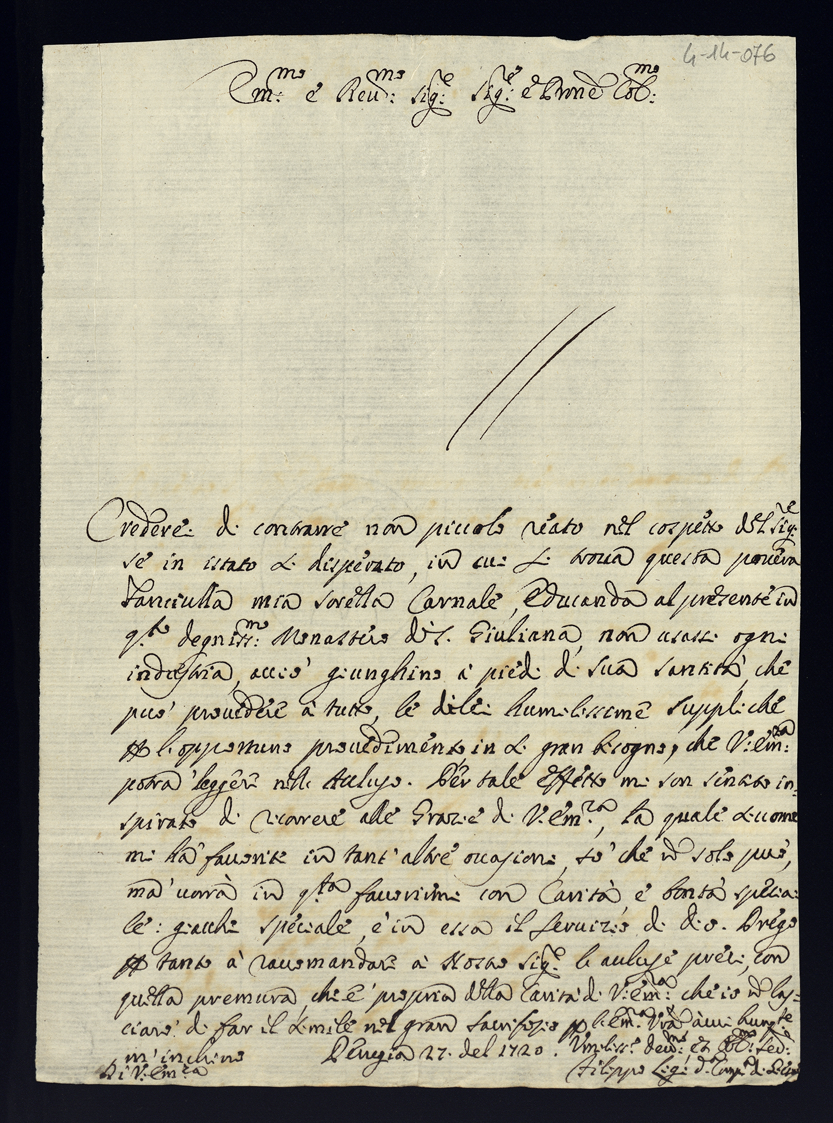 4-14-076
Em:mo e Reud:mo Sig:re Sig:re e Prone Col:mo
Crederei di contrarre non piccolo reato nel cospetto del Sig:re
se in istato di disperato, in cui si troua questa pouera
fanciulla mia sorella Carnale, Educanda al presente in
q.to degniss:mo Monastero di S. Giuliana, non usassi ogni
industria, acciò giunghino à piedi di Sua Santità, che
può prouedere à tutto, le di lei humilissime suppliche
p l'opportuno prouedimento in si gran bisogno, che V: Em:za
potrà leggere nell'. Per tale effetto mi son sentito in-
spirato di ricorrere alle Grazie di V. Em:za, la quale si come
mi hà fauorito in tant'altre occasioni, sò che nõ solo può,
mà uorrà in q.ta fauorirmi con Carità e bontà specia-
le: giacche speciale, è in essa il seruizio di Dio. Prego
p tanto à raccomandare à Nostro Sig.re le preci, con
quella premura che è propria della Carità di V: Em:za che io nõ las-
ciarò di far il simile nel gran Sacrifizio p l'Em:za Vra à cui hum.te
m'inchino Perugia 27. del 1720. Vmiliss:o deu:mo et Ser:
Di V. Em:za Filippo